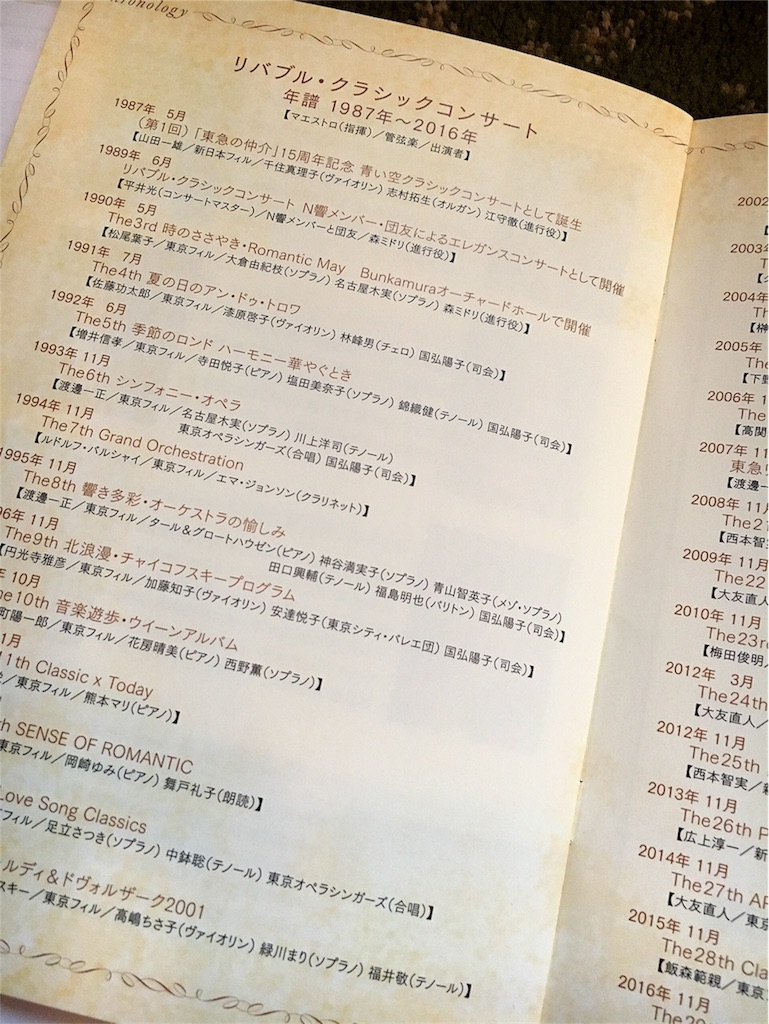 ronology
リバブル・クラシックコンサート
年譜 1987年〜2016年
【マエストロ(指揮)／管弦楽／出演者】
1987年 5月
(第1回)「東急の仲介」15周年記念 青い空クラシックコンサートとして誕生
【山田一雄／新日本フィル／千住真理子(ヴァイオリン) 志村拓生(オルガン) 江守徹(進行役)】
1989年 6月
リバブル・クラシックコンサート N響メンバー・団友によるエレガンスコンサートとして開催
【平井光(コンサートマスター)／N響メンバーと団友／森ミドリ(進行役)】
1990年 5月
The3rd 時のささやき・Romantic May Bunkamuraオーチャードホールで開催
【松尾葉子／東京フィル／大倉由紀枝(ソプラノ) 名古屋木実(ソプラノ) 森ミドリ(進行役)】
1991年 7月
The4th 夏の日のアン・ドゥ・トロワ
【佐藤功太郎／東京フィル／漆原啓子(ヴァイオリン) 林峰男(チェロ) 国弘陽子(司会)】
1992年 6月
The5th 季節のロンド ハーモニー華やぐとき
【増井信孝／東京フィル／寺田悦子(ピアノ) 塩田美奈子(ソプラノ) 錦織健(テノール) 国弘陽子(司会)】
1993年 11月
The6th シンフォニー・オペラ
【渡邊一正／東京フィル／名古屋木実(ソプラノ) 川上洋司(テノール)
東京オペラシンガーズ(合唱) 国弘陽子(司会)】
1994年 11月
The7th Grand Orchestration
【ルドルフ・バルシャイ／東京フィル／エマ・ジョンソン(クラリネット)】
1995年 11月
The8th 響き多彩・オーケストラの愉しみ
【渡邊一正／東京フィル／タール＆グロートハウゼン(ピアノ) 神谷満実子(ソプラノ) 青山智英子(メゾ・ソプラノ)
田口興輔(テノール) 福島明也(バリトン) 国弘陽子(司会)】
96年 11月
The9th 北浪漫・チャイコフスキープログラム
【円光寺雅彦／東京フィル／加藤知子(ヴァイオリン) 安達悦子(東京シティ・バレエ団) 国弘陽子(司会)】
年 10月
he10th 音楽遊歩・ウイーンアルバム
町陽一郎／東京フィル／花房晴美(ピアノ) 西野薫(ソプラノ)】
1月
11th Classic x Today
／東京フィル／熊本マリ(ピアノ)】
th SENSE OF ROMANTIC
東京フィル／岡崎ゆみ(ピアノ) 舞戸礼子(朗読)】
Love Song Classics
フィル／足立さつき(ソプラノ) 中鉢聡(テノール) 東京オペラシンガーズ(合唱)】
ルディ＆ドヴォルザーク2001
スキー／東京フィル／高嶋ちさ子(ヴァイオリン) 緑川まり(ソプラノ) 福井敬(テノール)】
2002
2003年
2004年
The
【榊
2005年
The
【下野
2006年 1
The
【高関
2007年 11
東急リ
【渡邊一
2008年 11月
The21
【西本智実／
2009年 11月
The22
【大友直人
2010年 11月
The23rd
【梅田俊明／
2012年 3月
The24th
【大友直人／
2012年 11月
The25th
【西本智実／新
2013年 11月
The26th P
【広上淳一／新
2014年 11月
The27th AF
【大友直人／東
2015年 11月
The28th Cla
【飯森範親／東京
2016年 11月
The29